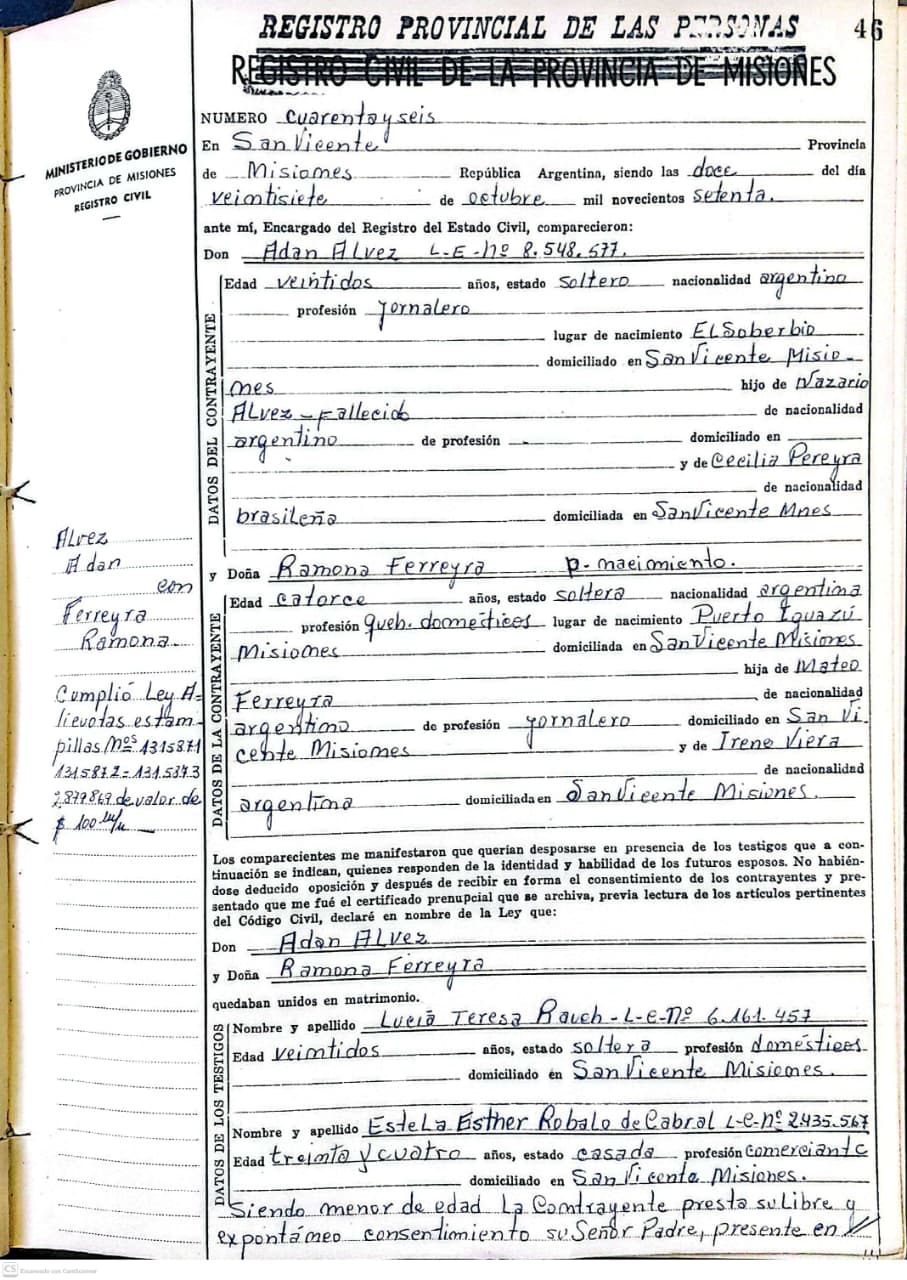 REGISTRO PROVINCIAL DE LAS PERSONAS 46
REGISTRO CIVIL DE LA PROVINCIA DE MISIONES
MINISTERIO DE GOBIERNO
PROVINCIA DE MISIONES
REGISTRO CIVIL
NUMERO Cuarentayseis
En San Vicente Provincia
de Misiones República Argentina, siendo las doce del día
veintisiete de octubre mil novecientos setenta.
ante mí, Encargado del Registro del Estado Civil, comparecieron:
Don Adan Alvez L-E-Nº 8.548.577.
DATOS DEL CONTRAYENTE
Edad veintidos años, estado soltero nacionalidad argentino
profesión jornalero
lugar de nacimiento El Soberbio
domiciliado en San Vicente Misio-
nes hijo de Nazario
Alvez - fallecido de nacionalidad
argentino de profesión - domiciliado en
y de Cecilia Pereyra
de nacionalidad
brasileña domiciliada en San Vicente Mnes
y Doña Ramona Ferreyra p- nacimiento.
DATOS DE LA CONTRAYENTE
Edad catorce años, estado soltera nacionalidad argentina
profesión queh. domésticos lugar de nacimiento Puerto Iguazú
Misiones domiciliado en San Vicente Misiones
hija de Mateo
Ferreyra de nacionalidad
argentino de profesión jornalero domiciliado en San Vi-
cente Misiones y de Irene Viera
de nacionalidad
argentina domiciliada en San Vicente Misiones.
Alvez
Adan
con
Ferreyra
Ramona.
Cumplió Ley A-
lievotas estam-
pillas Nºs 1315871
1315872=1315873
2,879869 de valor de
$ 100 m/n
Los comparecientes me manifestaron que querían desposarse en presencia de los testigos que a con-
tinuación se indican, quienes responden de la identidad y habilidad de los futuros esposos. No habién-
dose deducido oposición y después de recibir en forma el consentimiento de los contrayentes y pre-
sentado que me fué el certificado prenupcial que se archiva, previa lectura de los artículos pertinentes
del Código Civil, declaré en nombre de la Ley que:
Don Adan Alvez
y Doña Ramona Ferreyra
quedaban unidos en matrimonio.
DATOS DE LOS TESTIGOS
Nombre y apellido Lucia Teresa Rauch - L-e-Nº 6.161.457
Edad veintidos años, estado soltera profesión domésticos
domiciliado en San Vicente Misiones.
Nombre y apellido Estela Esther Robalo de Cabral L-e-nº 2.435.567
Edad treinta y cuatro años, estado casada profesión comerciante
domiciliado en San Vicente Misiones.
Siendo menor de edad La Contrayente presta su Libre y
expontáneo consentimiento su Señor Padre, presente en //
CS Escaneado con CamScanner